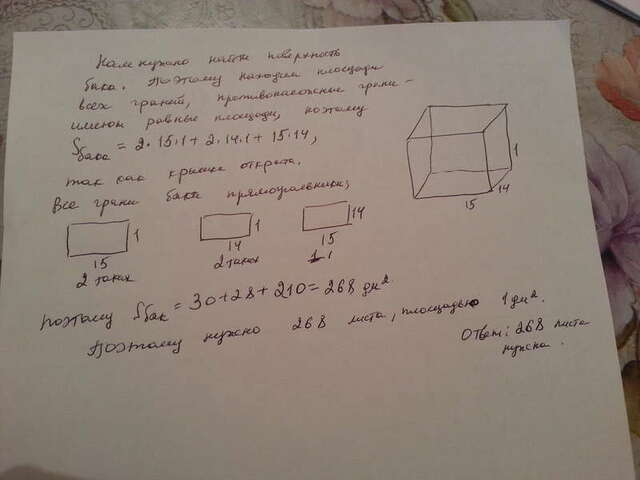 Нам нужно найти поверхность
бака. Поэтому находим площади
всех граней, противоположные грани -
имеют равные площади, поэтому
Sбака = 2·15·1 + 2·14·1 + 15·14,
так как крышка открыта.
Все грани бака прямоугольники,
1
14
15
1
15
2 таких
1
14
2 таких
14
15
1
поэтому Sбак = 30+28+210=268 дм².
Поэтому нужно 268 листа, площадью 1 дм².
Ответ: 268 листа
нужно.